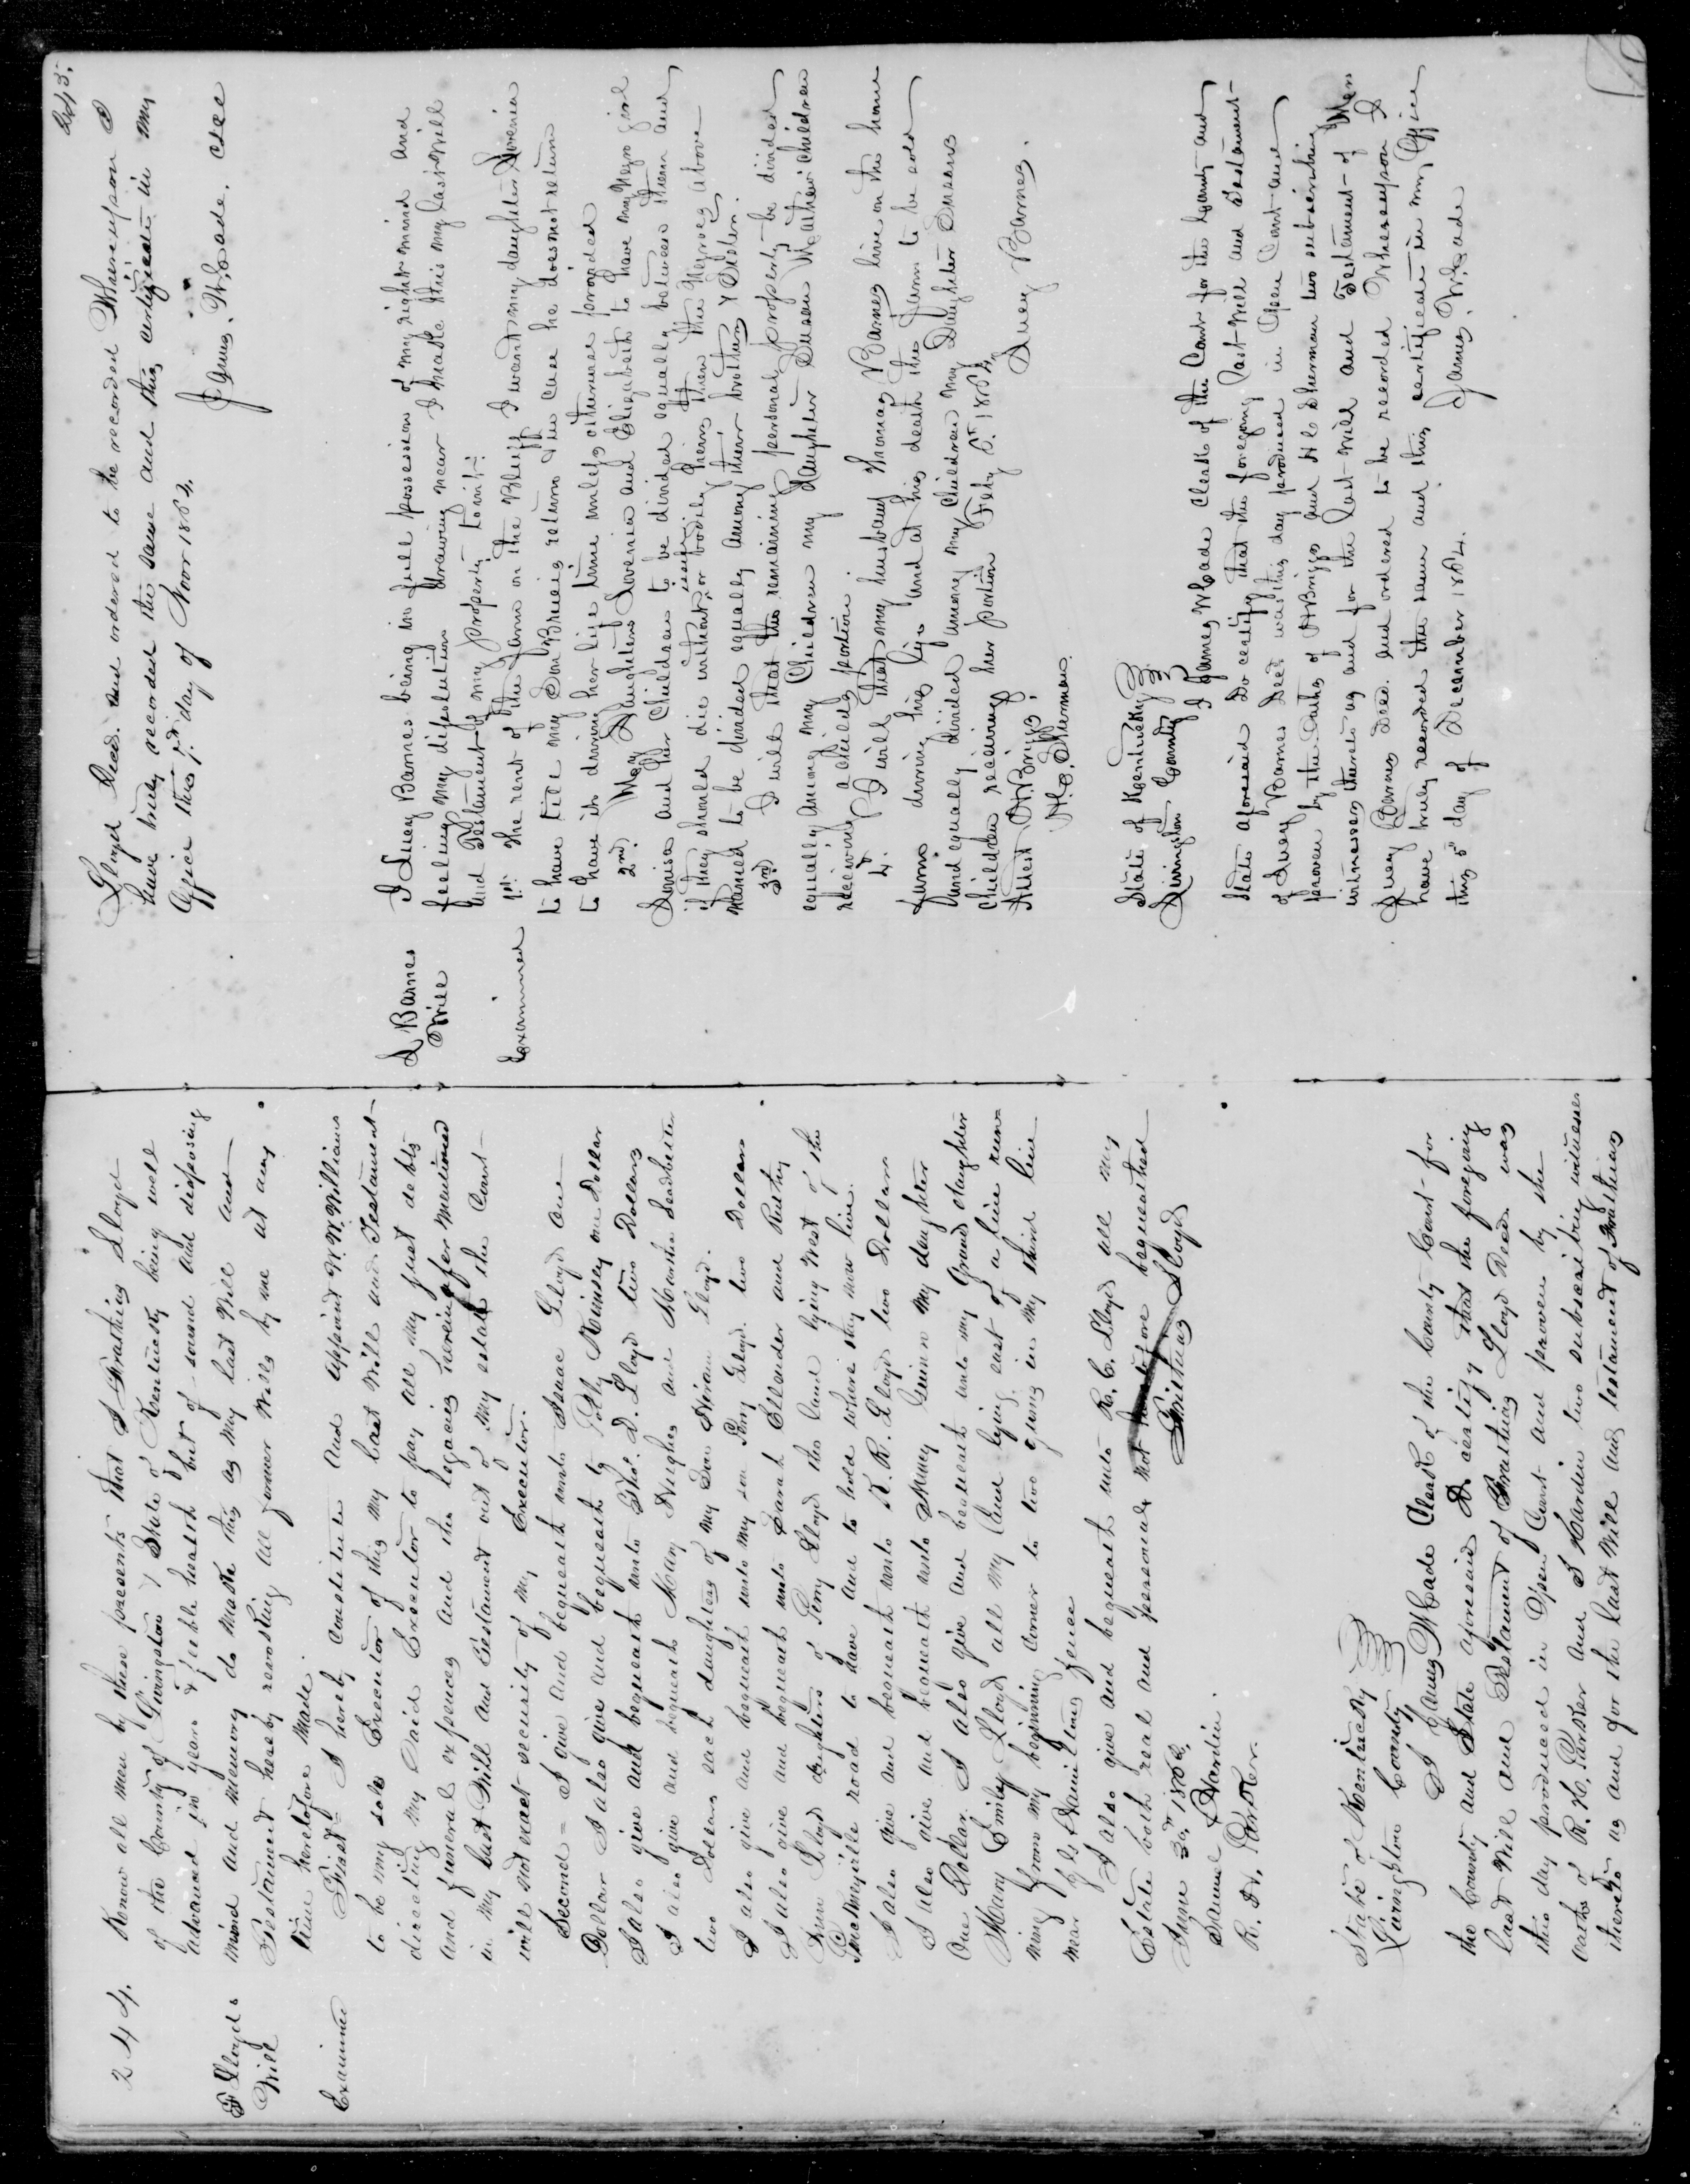 244.
Know all men by these presents that I Lloyd
of the County of Livingston & State of Kentucky being well
advanced in years & feeble health but of sound and disposing
mind and memory do make this as my last Will and
Testament hereby revoking all former Wills by me at any
time heretofore made.
Lloyds
Will
Examined
First - I hereby constitute and appoint W. W. Williams
to be my sole Executor of this my last Will and Testament
directing my said Executor to pay all my just debts
and funeral expences and the legacies hereinafter mentioned
in my last Will and Testament out of my estate the Court
will not exact security of my Executor.
Second = I give and bequeath unto Isaac Lloyd one
Dollar I also give and bequeath to Polly Kimsey one Dollar
I also give and bequeath unto Thos. D. Lloyd two Dollars
I also give and bequeath Mary Hughes and Martha Leadbetter
two Dollars each daughters of my Son Hiram Lloyd.
I also give and bequeath unto my son Perry Lloyd. two Dollars
I also give and bequeath unto Sarah Ellender and Ruthy
Ann Lloyd daughters of Perry Lloyd the land lying West of the
road to have and to hold where they now live.
I also give and bequeath unto R. R. Lloyd two Dollars
I also give and bequeath unto my daughter
One Dollar. I also give and bequeath unto my Grand daughter
Mary Emily Lloyd all my land lying east of a line runn
ning from my beginning corner to two gums in my third line
near fence
I also give and bequeath unto R. C. Lloyd all my
Estate both real and personal not heretofore bequeathed
June 30th
Lloyd
Samuel Hardin.
R. H. Parker.
State of Kentucky
Livingston County
I James McCade Clerk of the County Court for
the County and State aforesaid Do certify that the foregoing
last Will and Testament of Lloyd Decd was
this day produced in Open Court and proven by the
oaths of R. H. Parker and S Hardin two subscribing witnesses
thereto as and for the last Will and testament of
245.
Lloyd Decd. and ordered to be recorded Whereupon I
have truly recorded the same and this certificate in my
Office this day of Novr 1864.
James. McCade. CLCC
L Barnes
Will
Examined
I Lucy Barnes being in full possession of my right mind and
feeling my disolution drawing near I make this my last Will
and Testament of my property towit:
1st. The rent of the farm on the Bluff I want my daughter Lovenia
to have till my Son return in case he does not return
to have it during her life time unless otherwise provided
2nd. My Daughters Lovenia and Elizabeth to have my Negro girl
and her Children to be divided equally between them and
if they should die without issue or bodily heirs then the Negroes above
named to be divided equally among their brothers & Sisters.
3rd I will that the remaining personal property be divided
equally among my Children my Daughter Susan Mathew children
receiving a childs portion.
4. I will that my husband Thomas Barnes live on the home
farm during his life and at his death the farm to be sold
and equally divided among my Children my Daughter Susans
Children receiving her portion Feby 6th 1864
Attest Briggs.
H. C. Sherman.
Lucy Barnes.
State of Kentucky
Livingston County
I James McCade Clerk of the Court for the County and
State aforesaid Do certify that the foregoing last Will and Testament
of Lucy Barnes Decd was this day produced in Open Court and
proven by the oaths of Briggs and H C Sherman two subscribing
witnesses thereto as and for the last Will and Testament of
Lucy Barnes Decd. and ordered to be recorded Whereupon I
have truly recorded the same and this certificate in my Office
this 5" day of December 1864.
James. McCade